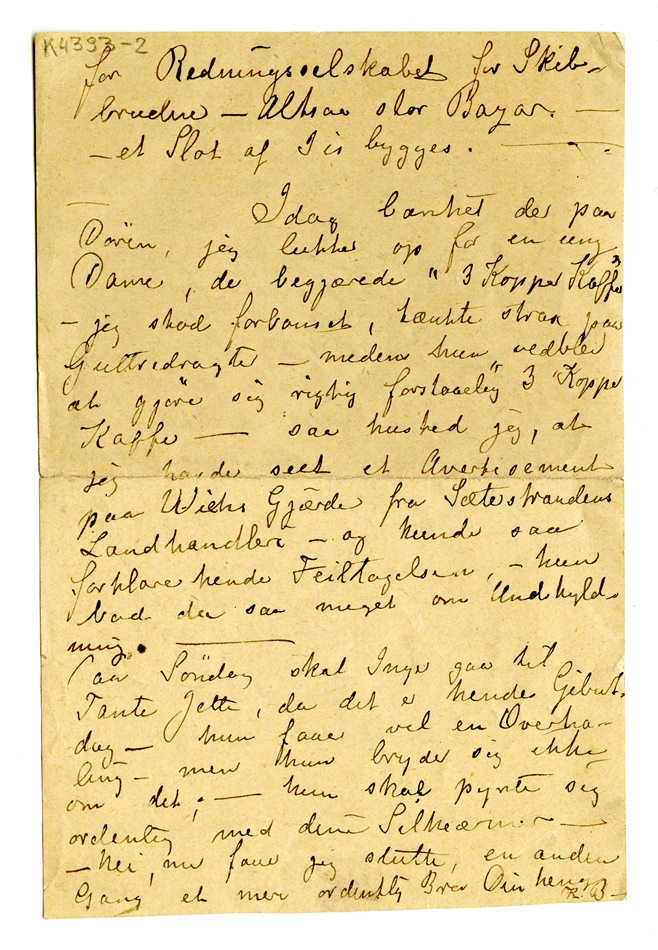 K4393-2
for Redningsselskabet for Skib-
brudne — Altsaa stor Bazar. —
— et Slot af Iis bygges. —
— Idag banket det paa
Døren, jeg lukket op for en ung
Dame, de begjærede "3 Kopper Kaffe"
— jeg stod forbauset, tænkte strax paa
— medens hun vedblev
at gjøre sig rigtig forstaaelig "3 Kopper
Kaffe — saa husked jeg, at
jeg havde seet et Avertisement
paa Wiehs Gjærde fra Sætestrandens
Landhandleri — og kunde saa
forklare hende Feiltagelsen, — hun
bad da saa meget om Undskyld-
ning. —
Paa Søndag skal Inga gaa til
Tante Jette, da det er hendes Geburts-
dag — hun faaer vel en Overha-
ling — men hun bryder sig ikke
om det; — hun skal pynte sig
ordentlig med dine Silkeærmer —
— Nei, nu faar jeg slutte, en anden
Gang et mer ordentlig Brev Din heng
K. B —